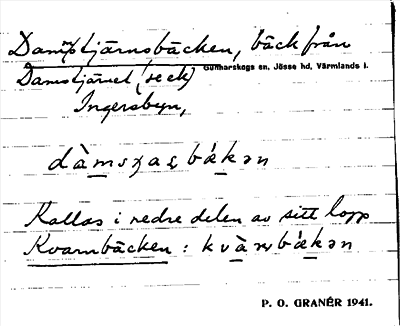 Damstjärnsbäcken, bäck från
Gunnarskogs sn, Jösse hd, Värmlands l.
Damstjärnet (se ek)
Ingersbyn,
Kallas i nedre delen av sitt lopp
Kvarnbäcken :
P. O. GRANÉR 1941.